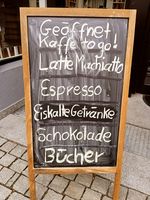 Geöffnet
Kaffe to go!
Latte Machiatto
Espresso
Eiskalte Getränke
Schokolade
Bücher